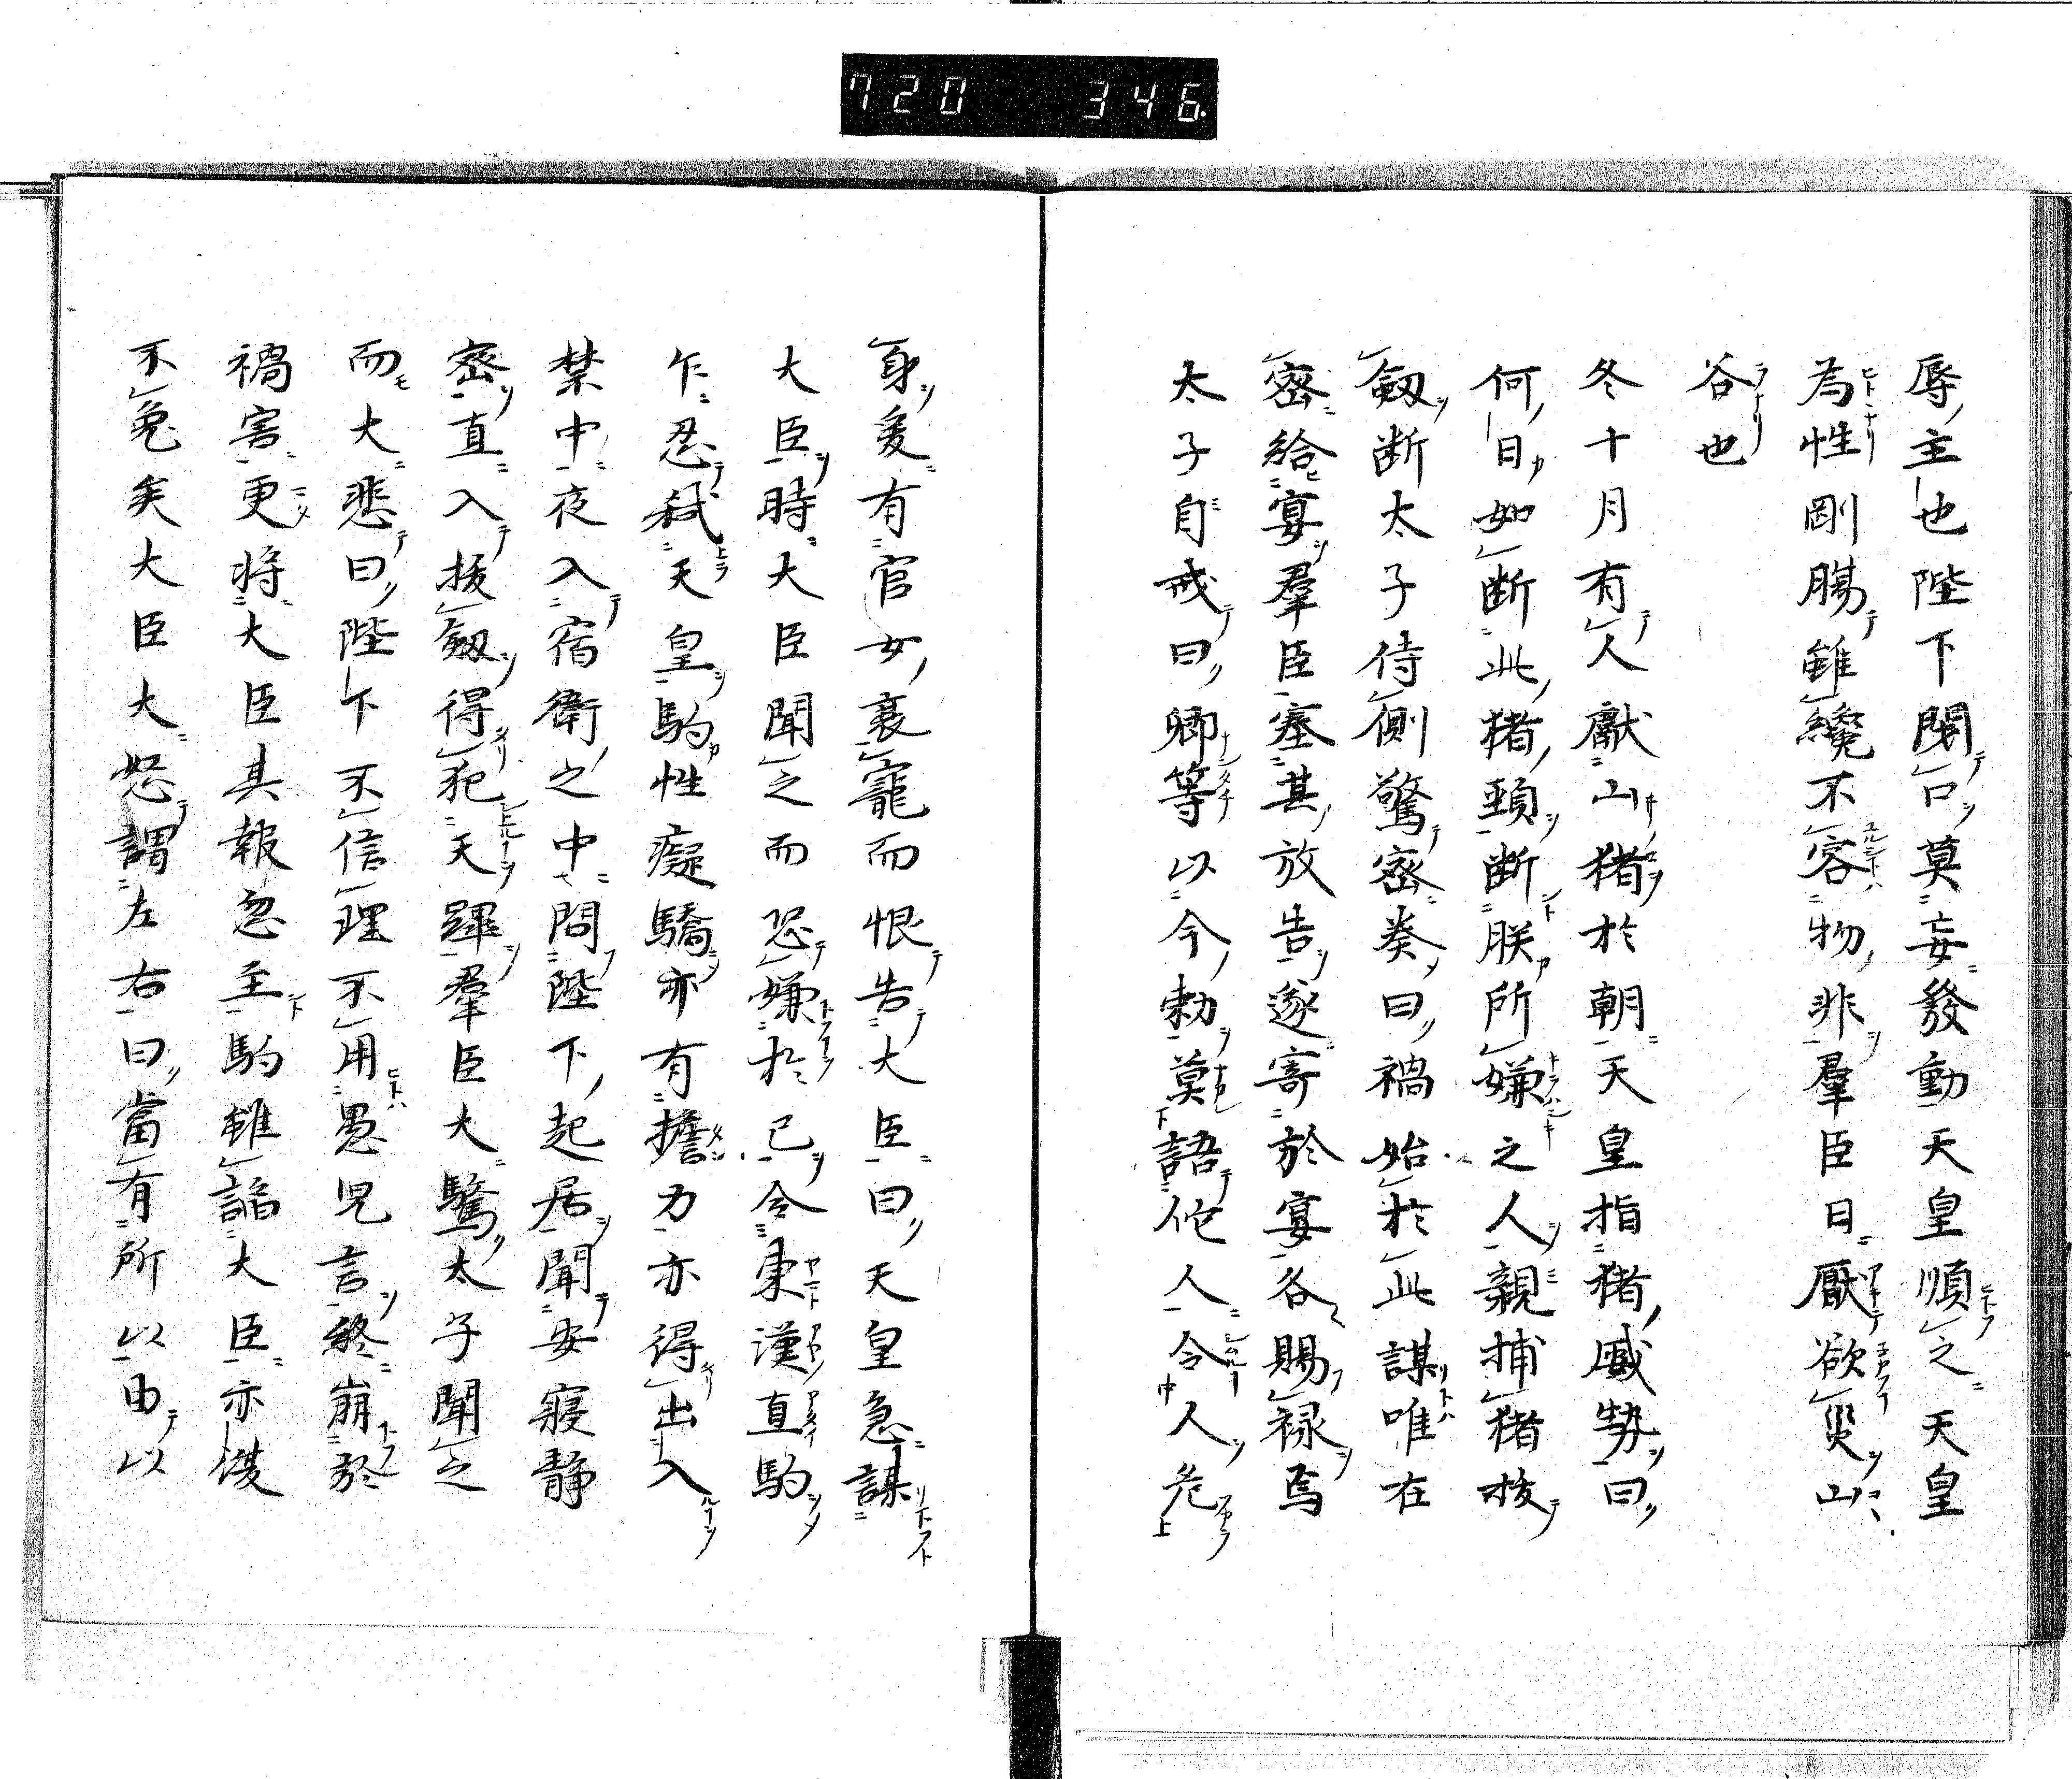 720 346.
辱主也陛下閇口莫妄發動天皇順之天皇
為性剛腸雖纔不容物非羣臣日厭欲災山
谷也
冬十月有人獻山猪於朝天皇指猪威勢曰
何日如断此猪頸断朕所嫌之人親捕猪抜
劔断太子侍側驚密奏曰禍始於此謀唯在
密給宴羣臣塞其放告遂寄於宴各賜禄焉
太子自戒曰卿等以今勅莫語佗人令人危
身爰有官女衰寵而恨告大臣曰天皇急謀
大臣時大臣聞之而恐嫌於己令東漢直駒
乍忍弑天皇駒性癡驕亦有擔力亦得出入
禁中夜入宿衛之中問陛下起居聞安寝静
密直入抜劔得犯天躰羣臣大驚太子聞之
而大悲曰陛下不信理不用愚児言終崩於
禍害更将大臣其報忽至駒雖諂大臣亦後
不免矣大臣大怒謂左右曰當有所以由以